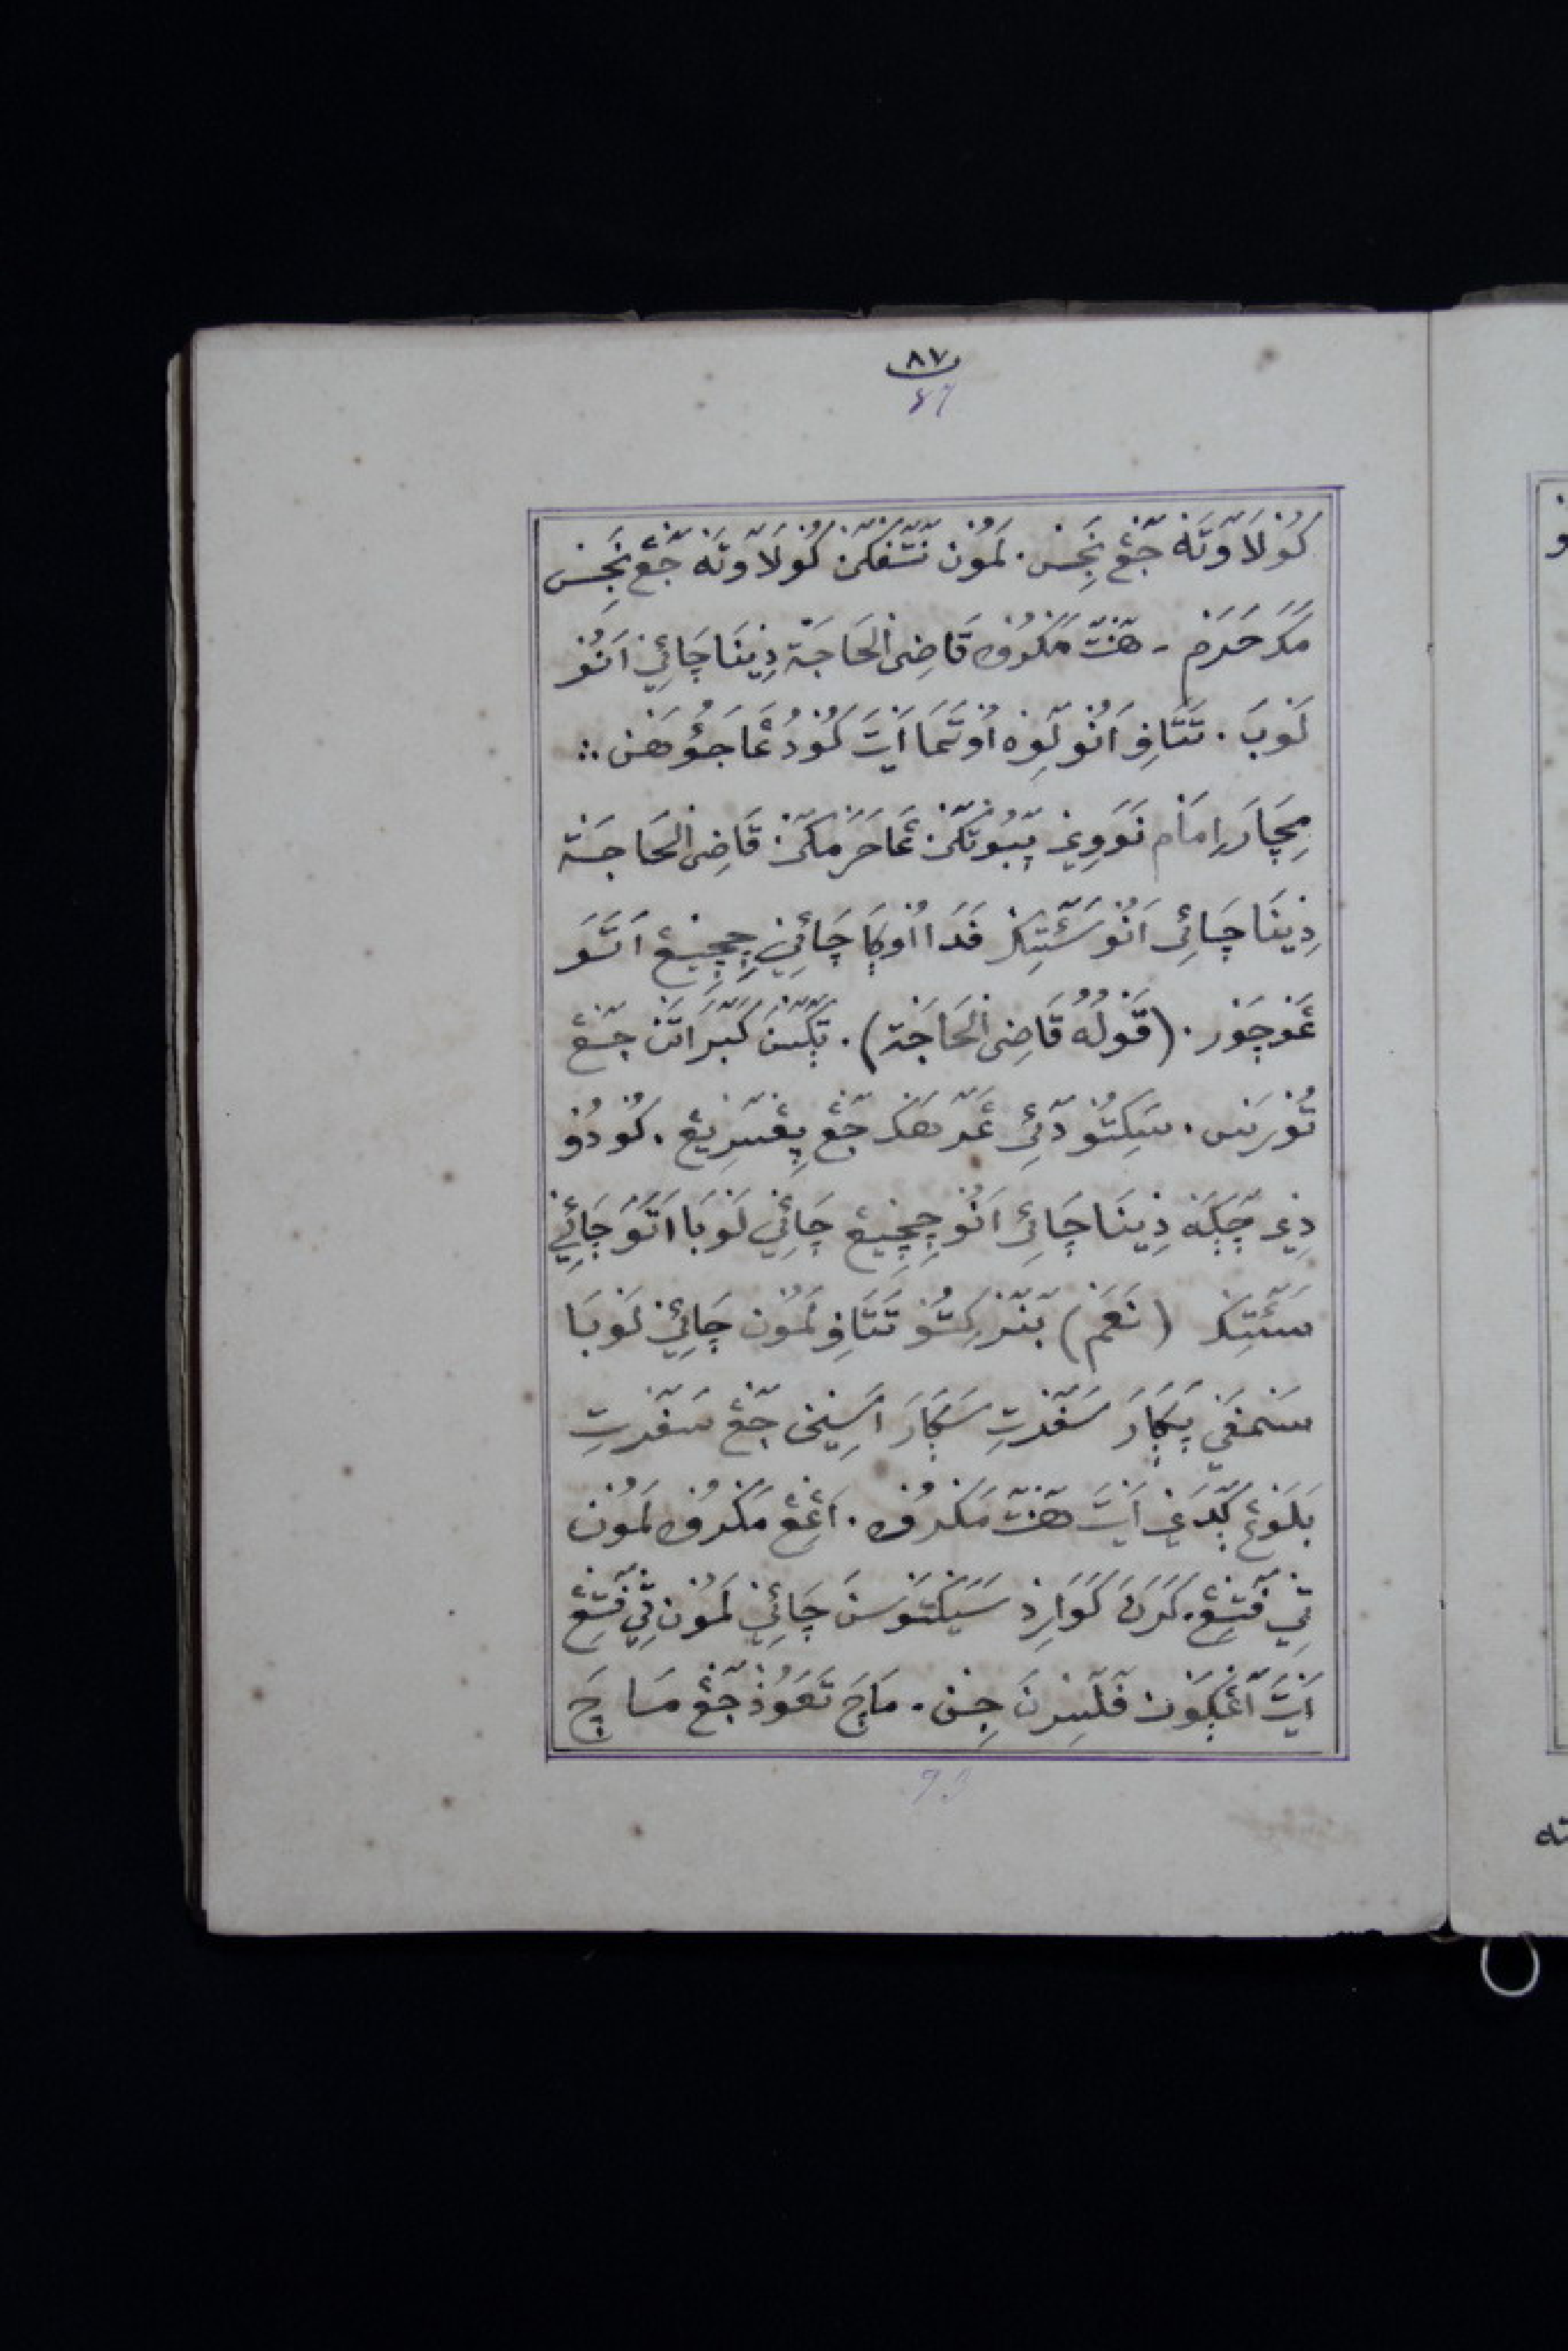 ٨٧
87
كُوْلَاوَتَهْ جَغْ نَجِسْ. لَمُوْنْ نَتَّفَكَنْ كُوْلَاوَتَهْ جَغْ نَجِسْ
مَكَ حَرَمْ - هَنْتَ مَكْرُوْهْ قَاضِى الْحَاجَةْ دِيْنَا چَائِيْ اَنُوْ
لَوْبَ. تَتَافِ اَنُوْ لَوِهْ اُوْتَمَا اَيْتَ كُوْدُ عَاجَؤُهَنْ ؞
مِچَارَ اِمَامْ نَوَوِيْ پَبُوْتَكَنْ عَاحَرَمَكَنْ قَاضِى الْحَاجَةْ
دِيْنَا چَائِى اَنُوْ سَئَتِكْ فَدَا اُوْكَا چَائِيْ چِچِڠِيْڠْ اَتَوَ
عَوْچَوْرْ. (قَوْلُهُ قَاضِى الْحَاجَةْ). تَكَسَنَ كَبَرَاتَنْ جَڠْ
تُوْرَنَسْ. سَكِتُوْ دَئِى عَرَهَكَ جَغْ پِڠْسَرِيْڠْ. كُوْدُوْ
دِيْ چَكَهْ دِيْنَا چَائِى اَنُوْ چِچِڠِيْڠْ چَائِيْ لَوْبَا اَتَوَ چَائِيْ
سَئَتِكْ (نَعَمْ) بَنَرْ كِتُوْ تَتَافِ لَمُوْنْ چَائِيْ لَوْبَا
سَمْفَيْ پَكَارَ سَفَرْتِ سَكَارَ اَسِيْنْ جَغْ سَفَرْتِ
بَلَوْڠْ كَدَيْ اَيْتَ هَنْتَ مَكْرُوْهْ. اَڠِڠْ مَكْرُوْهْ لَمُوْنْ
تِيْ فَتِڠْ. كَرَنَ كَوَارِدْ سَيَكْتَوْسَنَ چَائِيْ لَمُوْنْ تِيْ فَتِڠْ
اَيْتَ اَڠْكَوْنْ فَلَسِرَنَ جِنْ. مَاچَ تَعَوُّذْ جَغْ مَاچَ
93